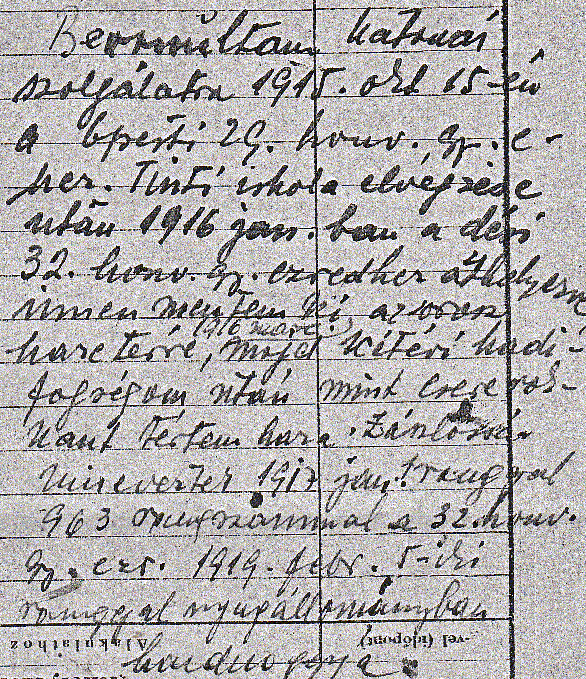 Bevonultam katonai
szolgálatra 1915. okt 15-én
a bpesti 29. honv. gy. e-
hez. Tiszti iskola elvégzése
után 1916 jan. ban a dési
32. honv. gy. ezredhez áthelyezve
innen mentem ki az orosz
1916 márc.
harctérre, majd kitérő hadi-
fogságom után mint csere rok-
kant tértem haza. Zászlóssá
kineveztek 1917 jan. 1 ranggal
963 rangszámmal a 32. honv.
gy. ezr. 1919. febr. 1-éki
ranggal nyugállományban
Alakulathoz -vel (időpont)
hadnaggyá.